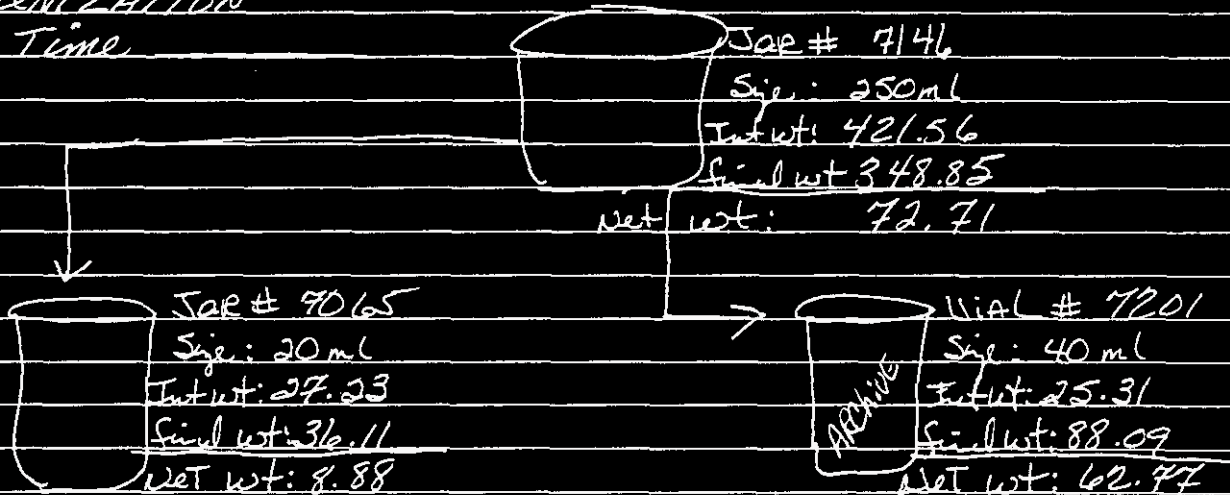 Time
Jar # 7146
Size: 250ml
Int wt: 421.56
final wt 348.85
Net wt: 72.71
Jar # 7065
Size: 20 ml
Int wt: 27.23
final wt: 36.11
Net wt: 8.88
Vial # 7201
Size: 40 ml
Int wt: 25.31
final wt: 88.09
Net wt: 62.77
ARCHIVE